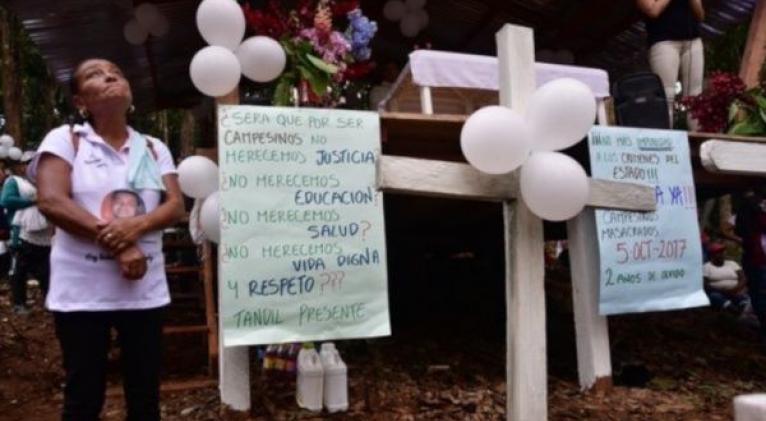 ¿SERA QUE POR SER
CAMPESINOS NO
MERECEMOS JUSTICIA?
¿NO MERECEMOS
EDUCACION?
¿NO MERECEMOS
SALUD?
¿NO MERECEMOS
VIDA DIGNA
Y RESPETO ???
TANDIL PRESENTE
NO MAS IMPUNIDAD
A LOS CRIMENES DEL
ESTADO!!!
YA!!
CAMPESINOS
MASACRADOS
5-OCT-2017
2 AÑOS DE